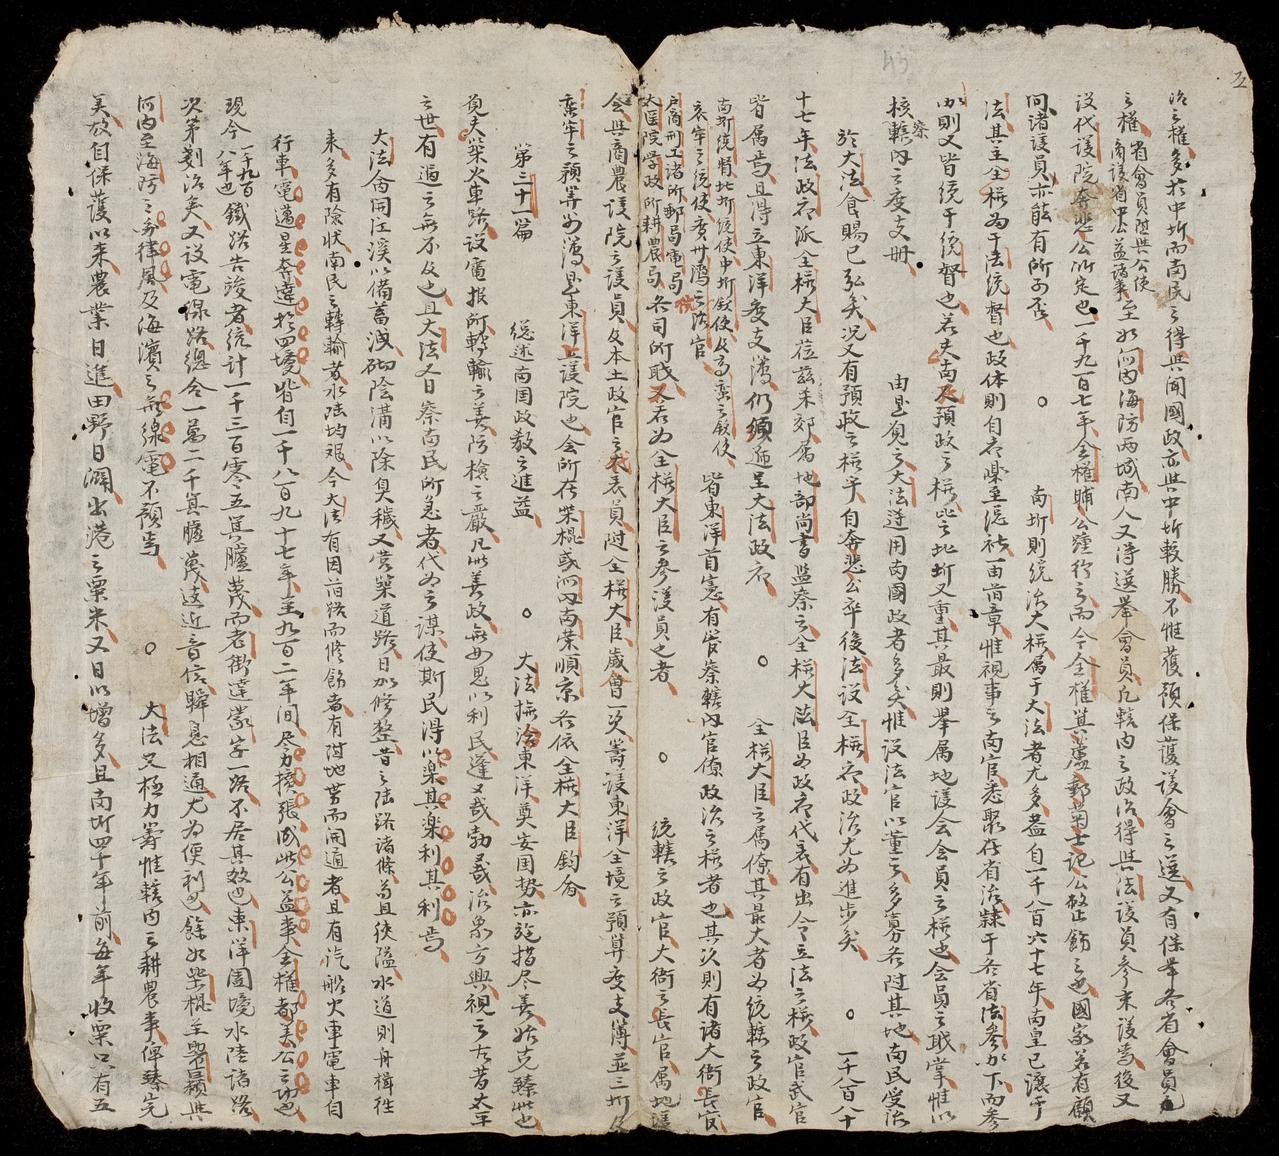 治之權多於中圻而南民之得與聞國政亦共中圻較勝不惟獲預保護議會之選又有保舉各省會員
之權 省會員隨與公使商議省中公益諸事 至如河內海防兩城南人又得選舉會員凡轄內之政治得與法議員參末議焉後又
設代議院奔悲公所定也一千九百七年全權脯公踵行之而今全權其蘆鄒菊士記公啟飭之也國家若有顧
問諸議員亦能有所可否 ○ 南圻則統治大權屬于大法者尤多盖自一千八百六十七年南皇已讓于
法其主全權為于法統督也政体則自者梁至隱社一由首章惟視事之南官悉聚在省治隸于各省法參加下而參
加則又皆統于統督也若夫南及預政之權比之北圻又重其最則舉属地議会会員之權也会員之職掌惟以
核轄內之度支册 由是觀之大法逹用南國政者多矣惟設法官以董之多募各附其地南民受治
於大法食賜已弘矣况又有預政之權乎自奔悲公卒後法設全權府政治尤為進步矣 ○ 一千八百八十
十七年法政府派全權大臣莅茲来郊屬地部尚書監察之全權大法臣如政府代表有出令立法之權政官武官
皆屬焉且得立東洋度支簿仍須逓呈大法政府 ○ 全權大臣之屬僚其最大者為統轄之政官
南圻統督北圻統使中圻欽使及高蛮之欽使哀牢之統使廣州灣之法官 皆東洋首憲有管察轄內官僚政治之權者也其次則有諸大衙長官
戶商刑工諸所郵局電局太医院学政所耕農局各司所職又若為全權大臣之參議員之者 ○ 統轄之政官大衙之長官属地議
会與商農議院之議員及本土政官之代表員附全權大臣歲會一次籌議東洋全境之預算度支簿並三圻及
蛮牢之預筭如簿是東洋上議院也会所在柴棍或河內南榮順京各依全權大臣鈞命
第三十一篇 総述南国政教之進益 ○ 大法撫治東洋奠安国勢亦施措尽善始克臻此也
夐夫築火車路設電報所轉輸之善防檢之嚴凡此善政無如思以利民逢又哉勃哉治象方興視之古昔太平
之世有過之無不及也且大法又日察南民所急者代為之謀使斯民得以楽其楽利其利焉
大法命開江溪以備蓄洩砌陰溝以除臭穢又營築道路日加修整昔之陆路諸條苟且俠隘水道則舟楫往
来多有險狀南民之轉輸者水陆均艰今大法有因旧路而修飭者有附地势而開通者且有汽船火車電車自
行車電邁星奔達於四境皆自一千八百九十七年至九百二年間尽力擴張成此公益事全權都美公之功也
現今 一千九百八年也 鐵路告竣者統計一千三百零五箕臚蔑而老街達蒙字一路不居其数也東洋國境水陆諸路
次第剗治矣又設電線路總合一萬二千箕臚蔑遠近音信瞬息相通尤為便利也餘如柴棍至畧嶺與
河內至海防之旁律風及海濱之無線電不預焉 ○ 大法又極力籌惟轄內之耕農事俾臻完
美故自保護以来農業日進田野日闢出港之粟米又日以增多且南圻四十年前每年收粟只有五